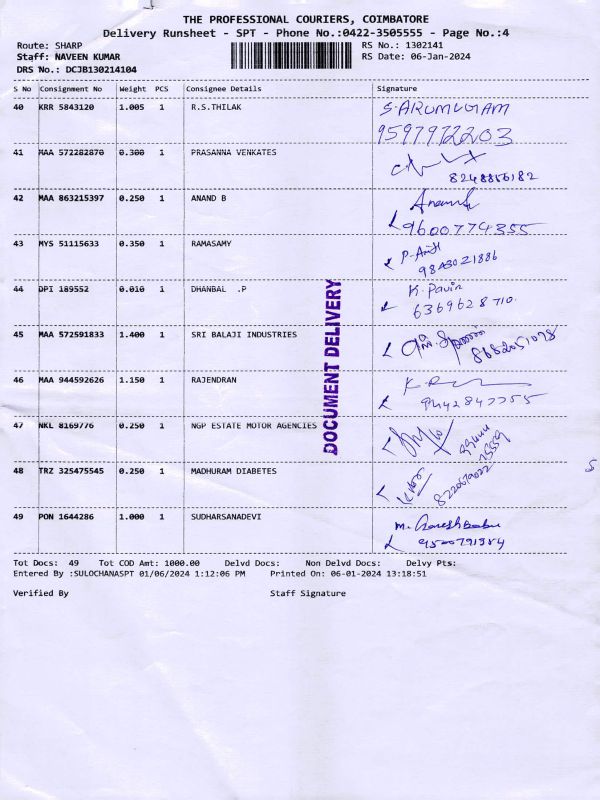 THE PROFESSIONAL COURIERS, COIMBATORE
Delivery Runsheet - SPT - Phone No.:0422-3505555 - Page No.:4
Route: SHARP RS No.: 1302141
Staff: NAVEEN KUMAR RS Date: 06-Jan-2024
DRS No.: DCJB130214104
S No Consignment No Weight PCS Consignee Details Signature
40 KRR 5843120 1.005 1 R.S.THILAK S.ARUMUGAM
9597972203
41 MAA 572282870 0.300 1 PRASANNA VENKATES
8248856182
42 MAA 863215397 0.250 1 ANAND B
9600774355
43 MYS 51115633 0.350 1 RAMASAMY
44 DPI 189552 0.010 1 DHANBAL .P K. Pavin
6369628710
45 MAA 572591833 1.400 1 SRI BALAJI INDUSTRIES
8682051078
46 MAA 944592626 1.150 1 RAJENDRAN
9442847755
47 NKL 8169776 0.250 1 NGP ESTATE MOTOR AGENCIES
48 TRZ 325475545 0.250 1 MADHURAM DIABETES
49 PON 1644286 1.000 1 SUDHARSANADEVI M. Ganesh Babu
9500791384
DOCUMENT DELIVERY
Tot Docs: 49 Tot COD Amt: 1000.00 Delvd Docs: Non Delvd Docs: Delvy Pts:
Entered By :SULOCHANASPT 01/06/2024 1:12:06 PM Printed On: 06-01-2024 13:18:51
Verified By Staff Signature